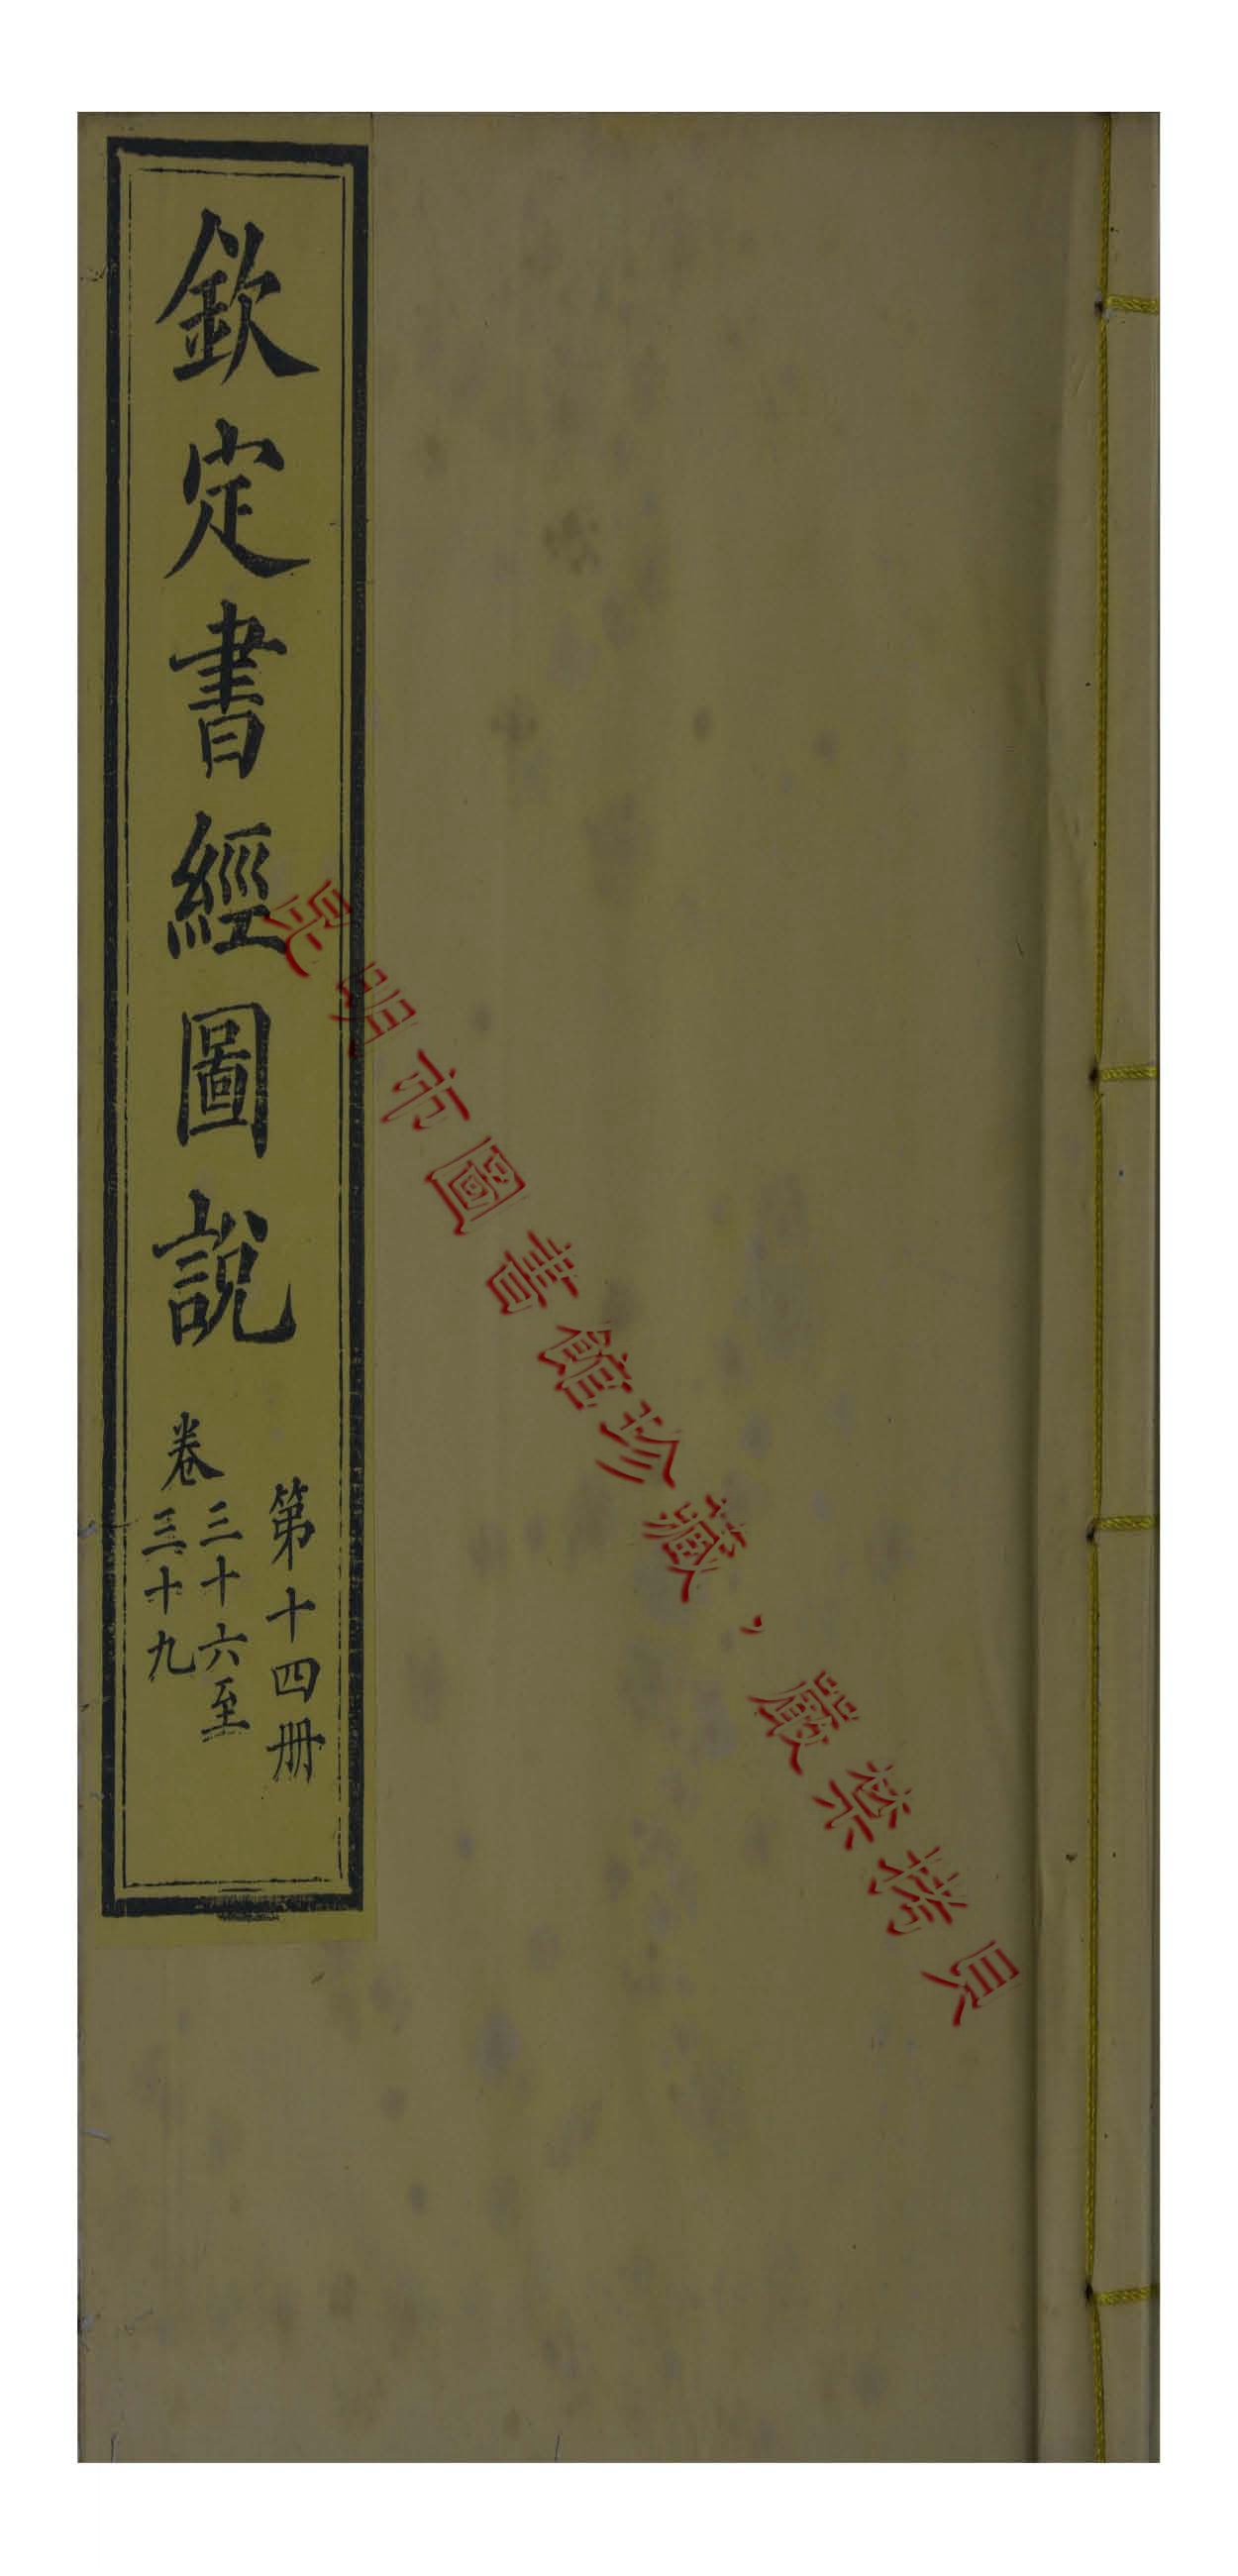 欽定書經圖說
第十四册
卷三十六至
三十九
昆明市圖書館珍藏，嚴禁拷貝